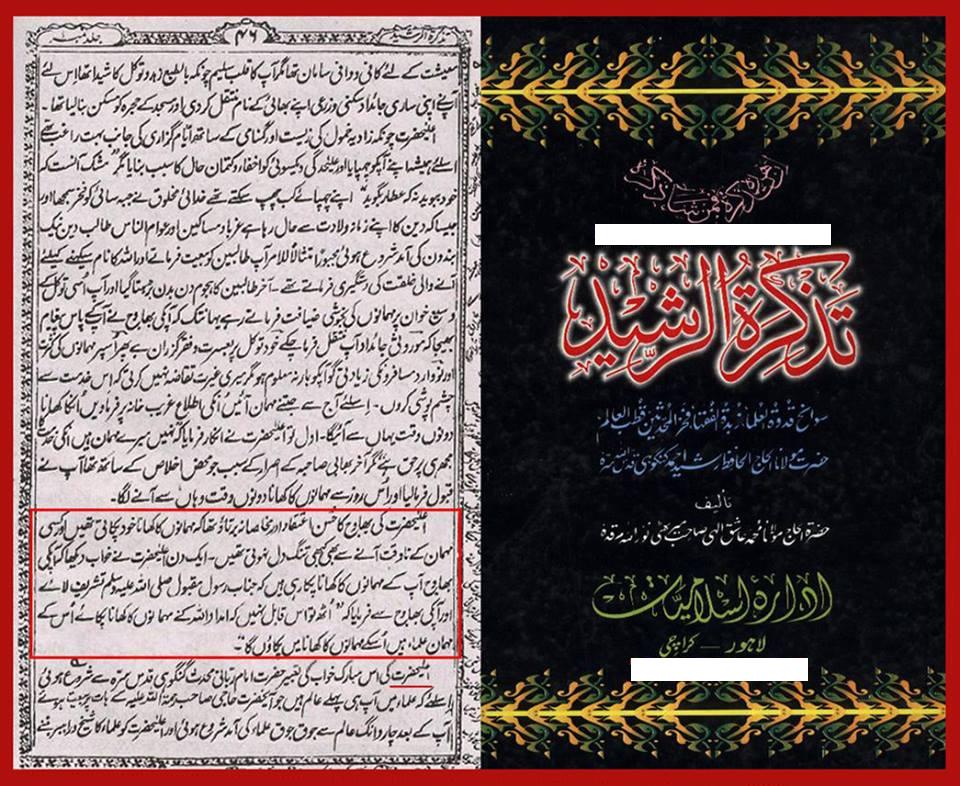 تذکرۃ الرشید
۴۶
جلد نمبر ۱
معیشت کے لئے کافی وافی سامان تھا مگر آپ کا قلب سلیم چونکہ بالطبع زہد و توکل کا شیدا تھا اس لئے
آپنے اپنی ساری جائداد سکنی و زرعی اپنے بھائی کے نام منتقل کر دی اور مسجد کے حجرہ کو مسکن بنا لیا تھا۔
اعلیٰحضرت چونکہ زاویہ خمول کی زیست اور گمنامی کے ساتھ ایام گزاری کی جانب بہت راغب تھے
اسلئے ہمیشہ اپنے آپکو چھپایا اور علیٰحدگی و یکسوئی کو اخفاء و کتمان حال کا سبب بنایا مگر مشک آنست کہ
خود ببوید نہ کہ عطار بگوید اپنے چھپائے کب چھپ سکتے تھے خدائی مخلوق نے جبہ سائی کو فخر سمجھا اور
جیسا کہ دین کا اپنے زمانہ ولادت سے حال رہا ہے غرباء و مساکین اور عوام الناس طالب دین نیک
بندون کی آمد شروع ہوئی مجبوراً امتثالاً للامر آپ طالبین کو بیعت فرماتے اور اللہ کا نام سیکھنے کیلئے
آنے والی خلقت کی دستگیری فرماتے تھے۔ آخر طالبین کا ہجوم دن بدن بڑھتا گیا اور آپ اسی توکل کے
وسیع خوان پر مہمانوں کی بخوشی ضیافت فرماتے رہے یہانتک کہ آپکی بھاوج نے آپکے پاس پیغام
بھیجا کہ موروثی جائداد آپ منتقل فرما چکے خود توکل پر بعسرت و فقر گزران ہے پھر اسپر مہمانوں کی کثرت
اور نووارد مسافرونکی زیادتی گو آپکو بار نہ معلوم ہو مگر میری غیرت تقاضہ نہیں کرتی کہ اس خدمت سے
چشم پوشی کروں۔ اسلئے آج سے جتنے مہمان آئیں اُنکی اطلاع غریب خانہ پر فرما دیں اُنکا کھانا
دونوں وقت یہاں سے آئیگا۔ اول تو اعلیٰحضرت نے انکار فرمایا کہ نہیں میرے مہمان ہیں انکی خدمت
مجھ ہی پر حق ہے مگر آخر بھابی صاحبہ کے اصرار کے سبب جو محض اخلاص کے ساتھ تھا آپ نے
قبول فرما لیا اور اُس روز سے مہمانوں کا کھانا دونوں وقت وہاں سے آنے لگا۔
اعلیٰحضرت کی بھاوج کا حسن اعتقاد اور مخلصانہ برتاؤ تھا کہ مہمانوں کا کھانا خود پکاتی تھیں اور کسی
مہمان کے ناوقت آنے سے بھی کبھی تنگ دل نہوتی تھیں۔ ایک دن اعلیٰحضرت نے خواب دیکھا کہ آپکی
بھاوج آپ کے مہمانوں کا کھانا پکا رہی ہیں کہ جناب رسول مقبول صلی اللہ علیہ وسلم تشریف لائے
اور آپکی بھاوج سے فرمایا کہ "اُٹھ تو اس قابل نہیں کہ امداد اللہ کے مہمانوں کا کھانا پکائے اُس کے
مہمان علماء ہیں اُسکے مہمانوں کا کھانا میں پکاؤں گا"۔
اعلیٰحضرت کی اس مبارک خواب کی تعبیر حضرت امام ربانی محدث گنگوہی قدس سرہ سے شروع ہوئی
اسلئے کہ علماء میں آپ ہی پہلے عالم ہیں جو اعلیٰحضرت حاجی صاحب رحمۃ اللہ علیہ کے ہاتھ پر بیعت ہوئے
آپ کے بعد چار دانگ عالم سے جوق جوق علماء کی آمد شروع ہوئی اور اعلیٰحضرت کو علماء کا شیخ و راہبر بننے
تذکرۃ الرشید
سوانح قدوۃ العلماء زبدۃ الفقہا فخر المحدثین قطب العالم
حضرت مولانا الحاج الحافظ رشید احمد گنگوہی قدس اللہ سرہ
تألیف
حضرۃ الحاج مولانا محمد عاشق الٰہی صاحب میرٹھی نور اللہ مرقدہ
ادارہ اسلامیات
لاہور — کراچی